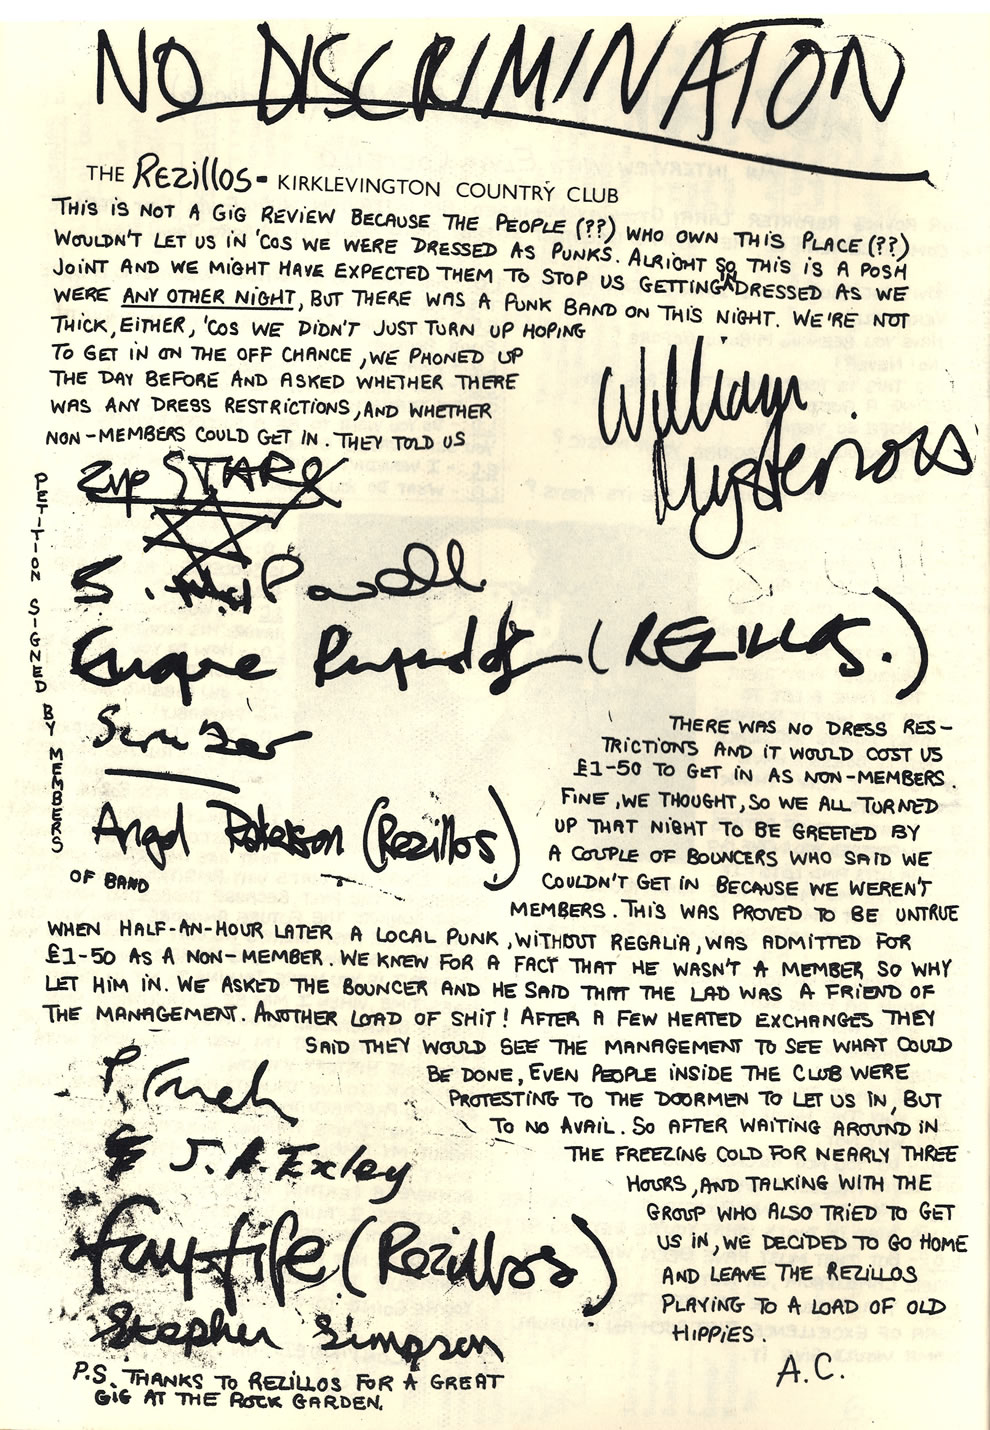 NO DISCRIMINATON
THE REZillOS - KIRKLEVINGTON COUNTRY CLUB
THIS IS NOT A GIG REVIEW BECAUSE THE PEOPLE (??) WHO OWN THIS PLACE (??)
WOULDN'T LET US IN 'COS WE WERE DRESSED AS PUNKS. ALRIGHT SO THIS IS A POSH
JOINT AND WE MIGHT HAVE EXPECTED THEM TO STOP US GETTING IN DRESSED AS WE
WERE ANY OTHER NIGHT, BUT THERE WAS A PUNK BAND ON THIS NIGHT. WE'RE NOT
THICK, EITHER, 'COS WE DIDN'T JUST TURN UP HOPING
TO GET IN ON THE OFF CHANCE, WE PHONED UP
THE DAY BEFORE AND ASKED WHETHER THERE
WAS ANY DRESS RESTRICTIONS, AND WHETHER
NON-MEMBERS COULD GET IN. THEY TOLD US
William
Mysterious
PETITION SIGNED BY MEMBERS
OF BAND
Zip STARR
S. Powell
Eugene Reynolds (REZILLOS.)
Angel Paterson (Rezillos)
THERE WAS NO DRESS RES-
TRICTIONS AND IT WOULD COST US
£1-50 TO GET IN AS NON-MEMBERS.
FINE, WE THOUGHT, SO WE ALL TURNED
UP THAT NIGHT TO BE GREETED BY
A COUPLE OF BOUNCERS WHO SAID WE
COULDN'T GET IN BECAUSE WE WEREN'T
MEMBERS. THIS WAS PROVED TO BE UNTRUE
WHEN HALF-AN-HOUR LATER A LOCAL PUNK, WITHOUT REGALIA, WAS ADMITTED FOR
£1-50 AS A NON-MEMBER. WE KNEW FOR A FACT THAT HE WASN'T A MEMBER SO WHY
LET HIM IN. WE ASKED THE BOUNCER AND HE SAID THAT THE LAD WAS A FRIEND OF
THE MANAGEMENT. ANOTHER LOAD OF SHIT! AFTER A FEW HEATED EXCHANGES THEY
SAID THEY WOULD SEE THE MANAGEMENT TO SEE WHAT COULD
BE DONE, EVEN PEOPLE INSIDE THE CLUB WERE
PROTESTING TO THE DOORMEN TO LET US IN, BUT
TO NO AVAIL. SO AFTER WAITING AROUND IN
THE FREEZING COLD FOR NEARLY THREE
HOURS, AND TALKING WITH THE
GROUP WHO ALSO TRIED TO GET
US IN, WE DECIDED TO GO HOME
AND LEAVE THE REZILLOS
PLAYING TO A LOAD OF OLD
HIPPIES.
A.C.
J. A. Exley
fay fife (Rezillos)
Stephen Simpson
P.S. THANKS TO REZILLOS FOR A GREAT
GIG AT THE ROCK GARDEN.